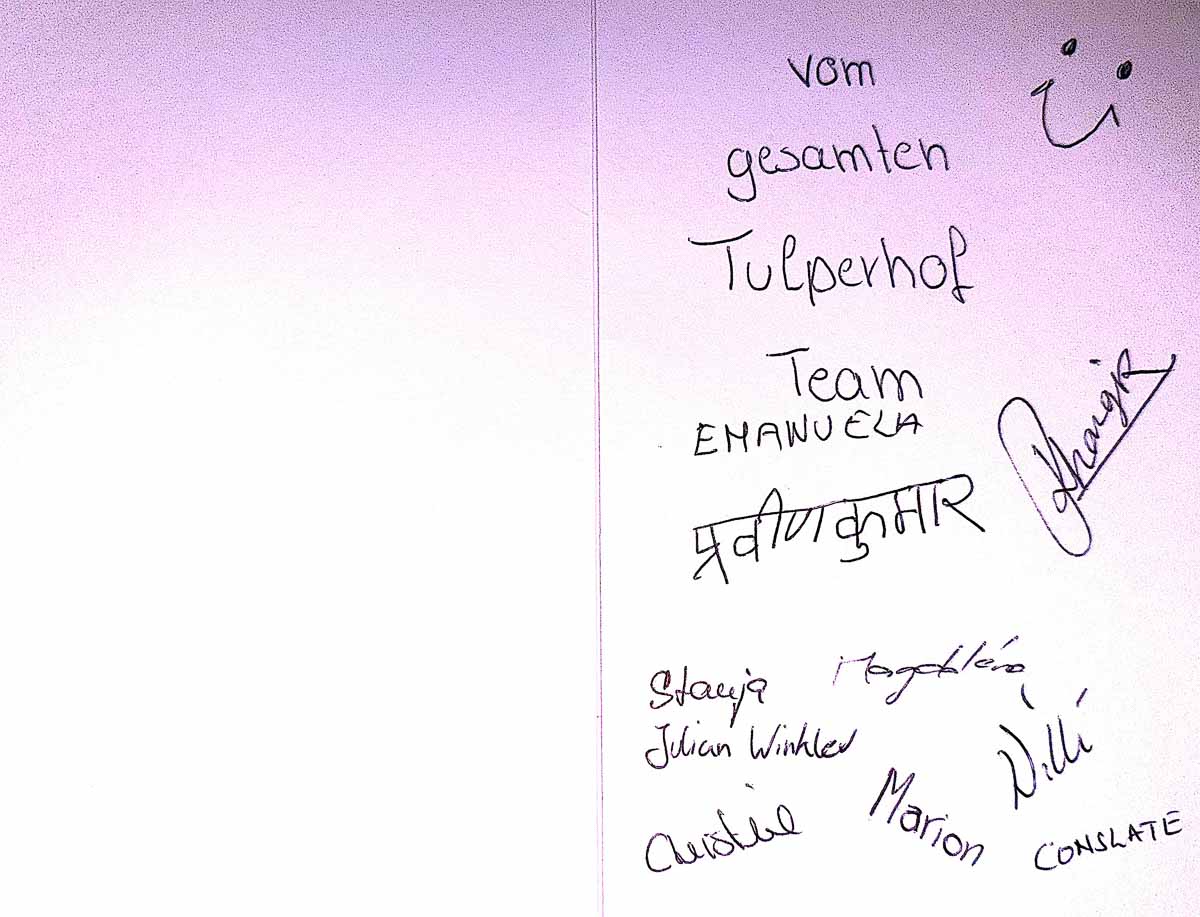 vom
gesamten
Tulperhof
Team
EMANUELA
प्रवीणकुमार
Stanja Magdaléna
Julian Winkler
Willi
Christine Marion
CONSLATE